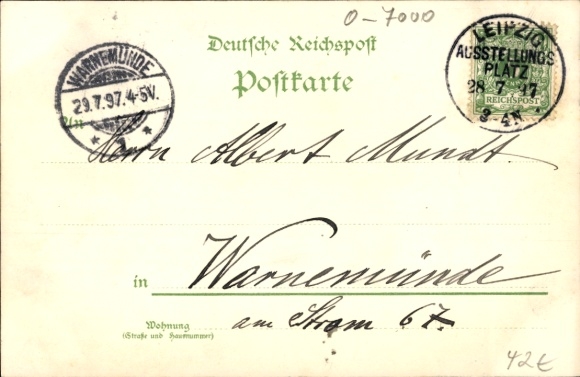 0-7000
Deutsche Reichspost
Postkarte
LEIPZIG
AUSSTELLUNGS
PLATZ
28 7 97
3-4N
REICHSPOST
WARNEMÜNDE
29.7.97.4-5V.
* 1 *
An
Herrn Albert Mundt.
in Warnemünde
am Strom 67.
Wohnung
(Straße und Hausnummer)
42t